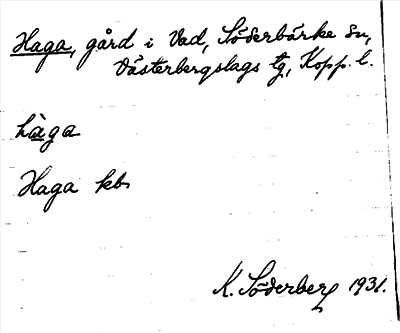 Haga, gård i Vad, Söderbärke sn,
Västerbergslags tg, Kopp. l.
hàga
Haga kb
K. Söderberg 1931.